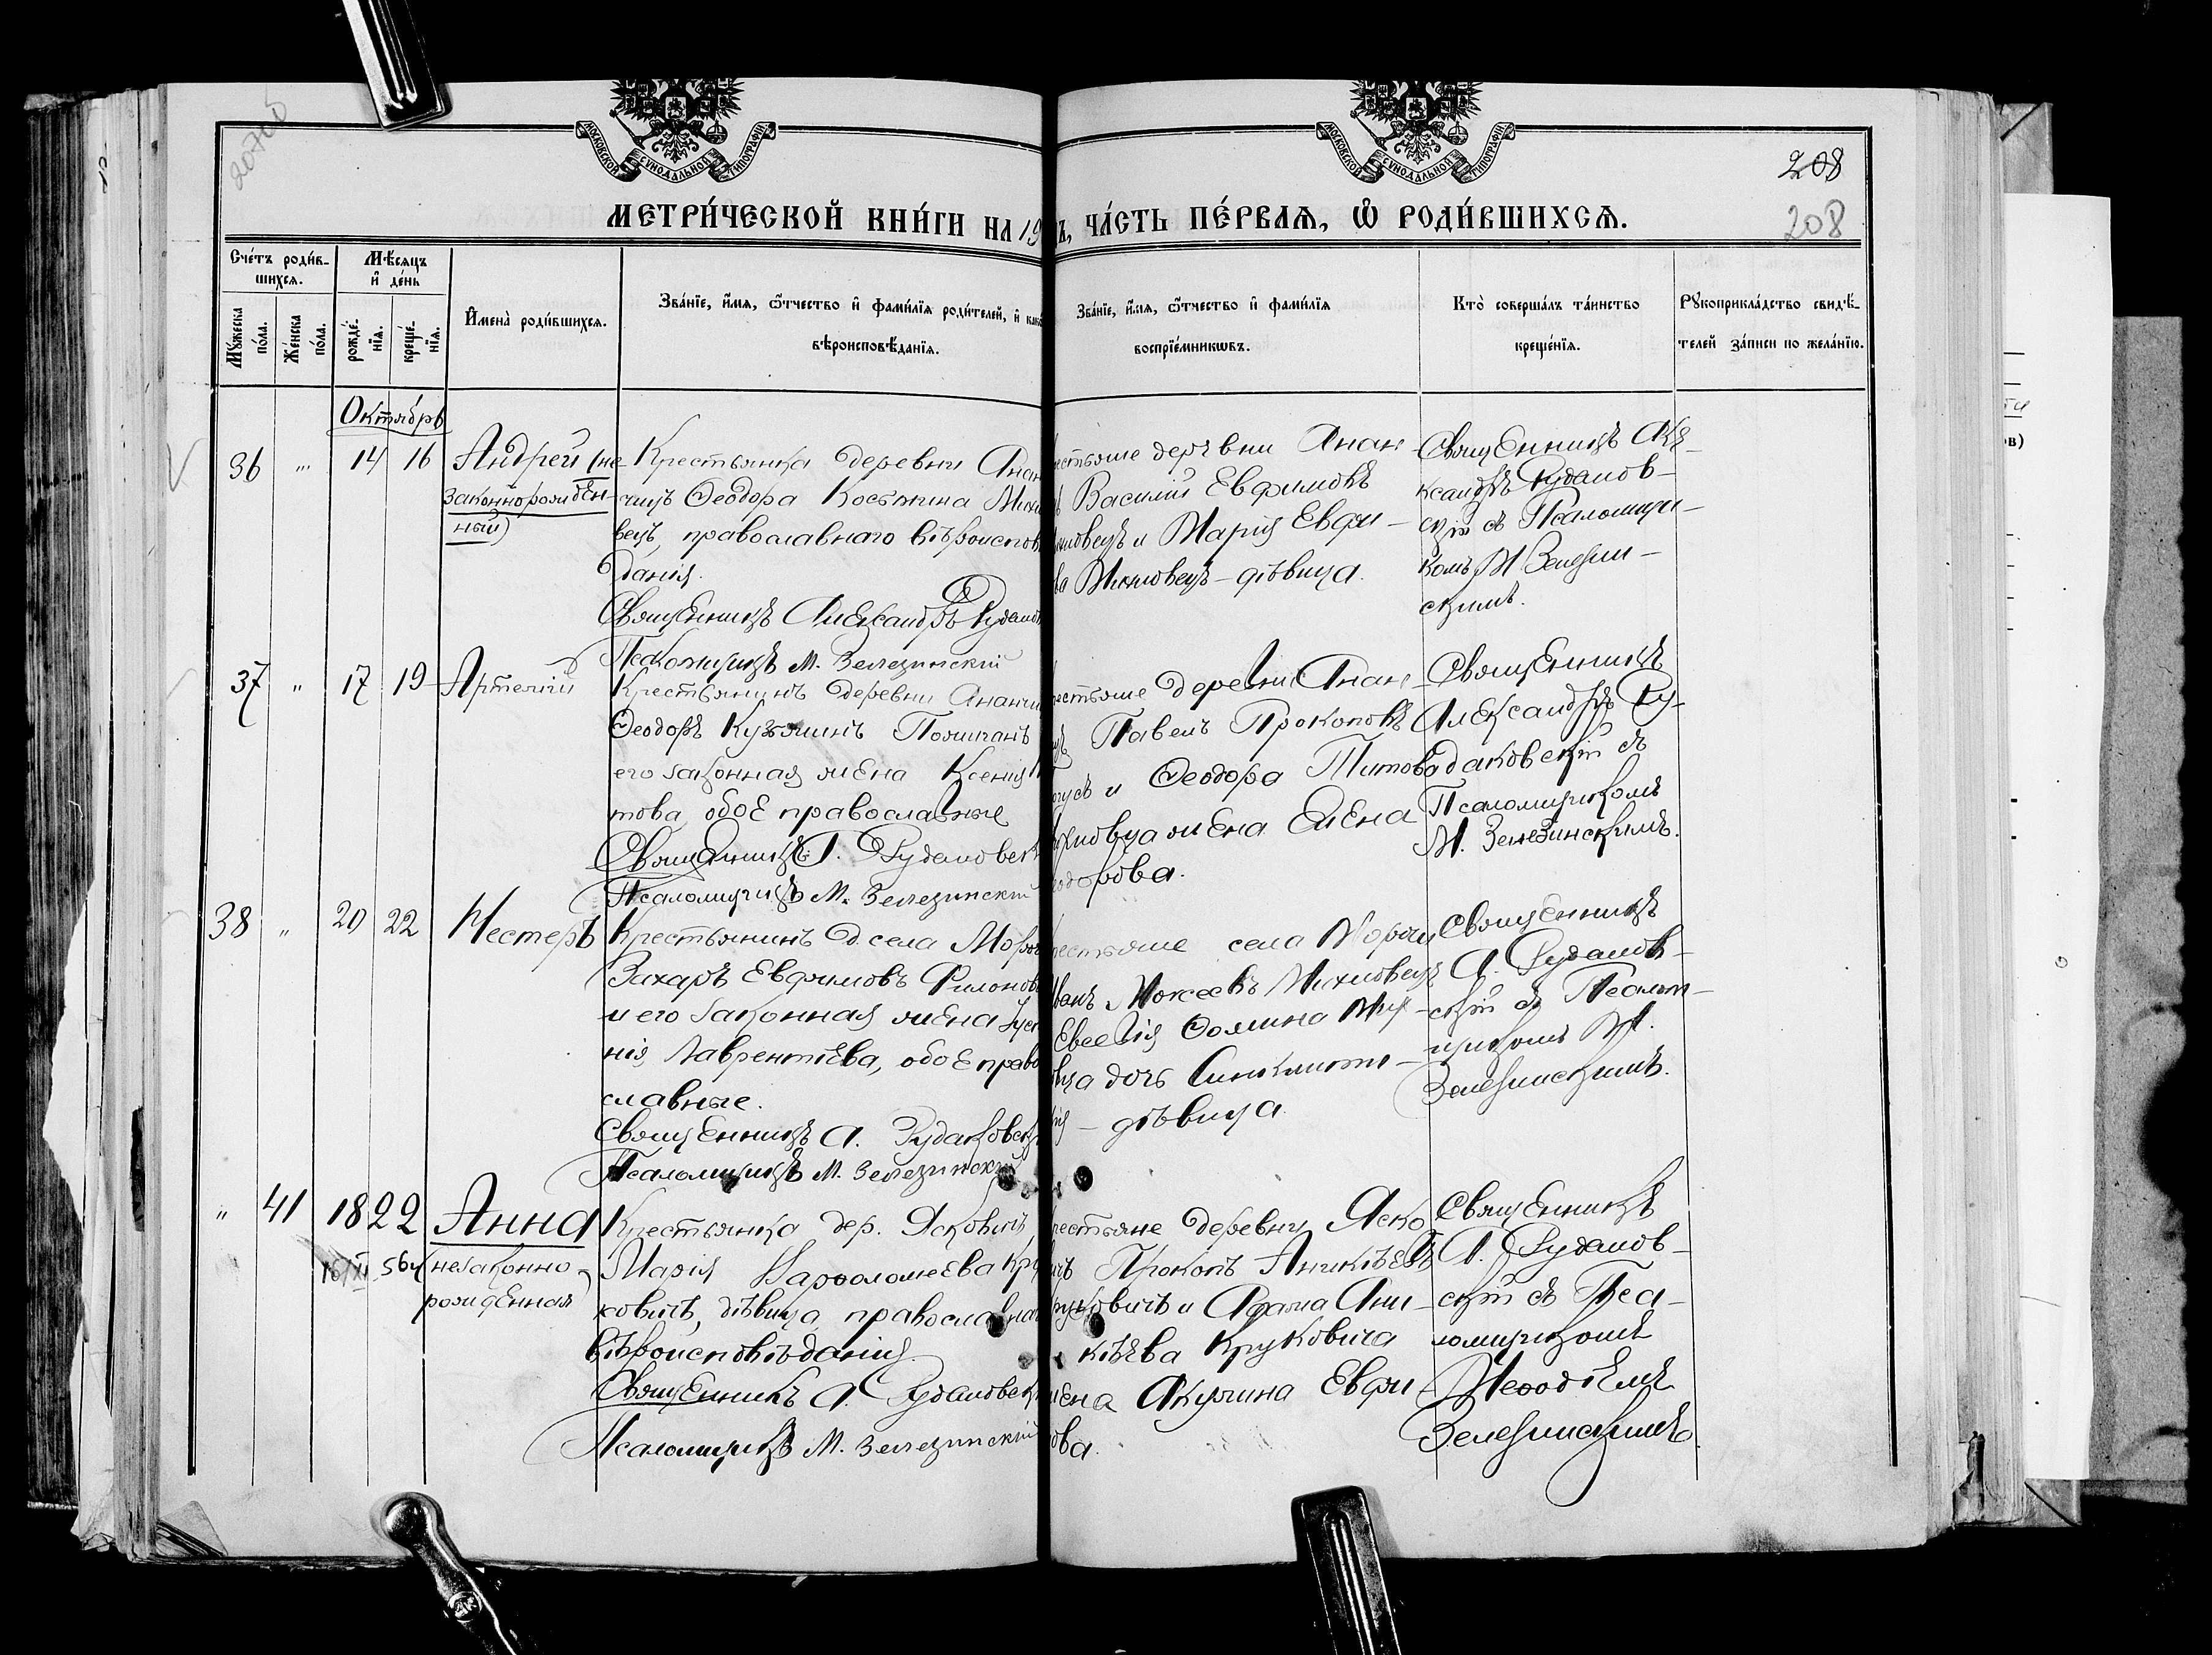 МОСКОВСКОЙ СУНОДАЛЬНОЙ ТИПОГРАФІИ
МОСКОВСКОЙ СУНОДАЛЬНОЙ ТИПОГРАФІИ
208
208
МЕТРИ́ЧЕСКОЙ КНИ́ГИ НА 19
Ъ, ЧА́СТЬ ПЕ́РВАЯ, Ѿ РОДИ́ВШИХСЯ.
Счетъ роди́в-
шихся.
Мѣсяцъ
и де́нь
Мꙋжеска по́ла.
Же́нска по́ла.
рожде́-нїя.
креще́-нїя.
Имена̀ роди́вшихся.
Зва́нїе, и́мя, ѻ҆тчество и фами́лїя роди́телей, и како
вѣроисповѣ́данїя.
Зва́нїе, и́мя, ѻ҆тчество и фами́лїя
воспрїе́мникѡвъ.
Кто̀ соверша́лъ та́инство
креще́нїя.
Рꙋкоприкла́дство свидѣ́-
телей за́писи по жела́нїю.
Октябрь
36 " 14 16 Андрей (не-
законнорожден-
ный)
Крестьянка деревни Анан
чицъ Ѳеодора Косьмина Михн
вецъ, православнаго вѣроиспов
данія.
Священникъ Александръ Рудаков
Псаломщикъ М. Зелезинскій
естьяне деревни Анан-
Василій Евфимовъ
новецъ и Марія Евфи-
ва Михновецъ - дѣвица.
Священникъ Але-
ксандръ Рудаков-
скій съ Псаломщи-
комъ М Зелезин-
скимъ.
37 " 17 19 Артемій
Крестьянинъ деревни Ананчи
Ѳеодоръ Кузьминъ
его законная жена Ксенія
това, обое православные
Священникъ А. Рудаковск
Псаломщикъ М. Зелезинскій
естьяне деревни Анан-
Павелъ Прокоповъ
и Ѳеодора Титова
хновца жена Елена
еодорова.
Священникъ
Александръ Ру-
даковскій съ
Псаломщикомъ
М. Зелезинскимъ.
38 " 20 22 Нестеръ
Крестьянинъ села Мороч
Захаръ Евфимовъ Филонов
и его законная жена Іуст
нія Лаврентіева, обое право
славные.
Священникъ А. Рудаковск
Псаломщикъ М. Зелезинскій
естьяне села Мороч
ванъ Моисеевъ Михновецъ
Евсевія Ѳомина Мих-
вца дочь Синклити-
ія - дѣвица.
Священникъ
А. Рудаков-
скій съ Псалом-
щикомъ М.
Зелезинскимъ.
" 41 18 22 Анна
незаконно-
рожденная
Крестьянка дер. Ясковичъ
Марія Варѳоломеева Кру
ковичъ, дѣвица, православнаг
вѣроисповѣданія.
Священникъ А. Рудаковск
Псаломщикъ М. Зелезинскій
рестьяне деревни Яско
ичъ Прокопъ Аникіевъ
руковичъ и Адама Ани-
кіева Круковича
жена Акулина Евфи
ова.
Священникъ
А. Рудаков-
скій съ Пса-
ломщикомъ
Меѳодіемъ
Зелезинскимъ.